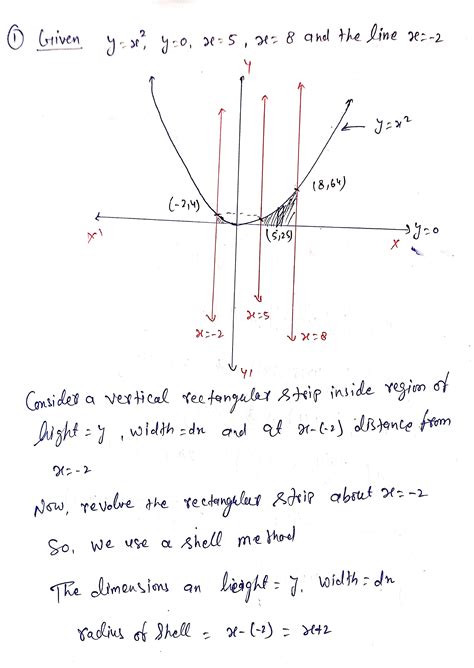 ① Given y=x², y=0, x=5, x=8 and the line x=-2
y
y=x²
(8,64)
(-2,4)
(5,25)
y=0
x'
x
x=5
x=-2
x=8
y'
Consider a vertical rectangular strip inside region of
hight=y, width=dx and at x-(-2) distance from
x=-2
Now, revolve the rectangular strip about x=-2
So, we use a shell method
The dimensions an height=y, width=dx
radius of shell = x-(-2) = x+2